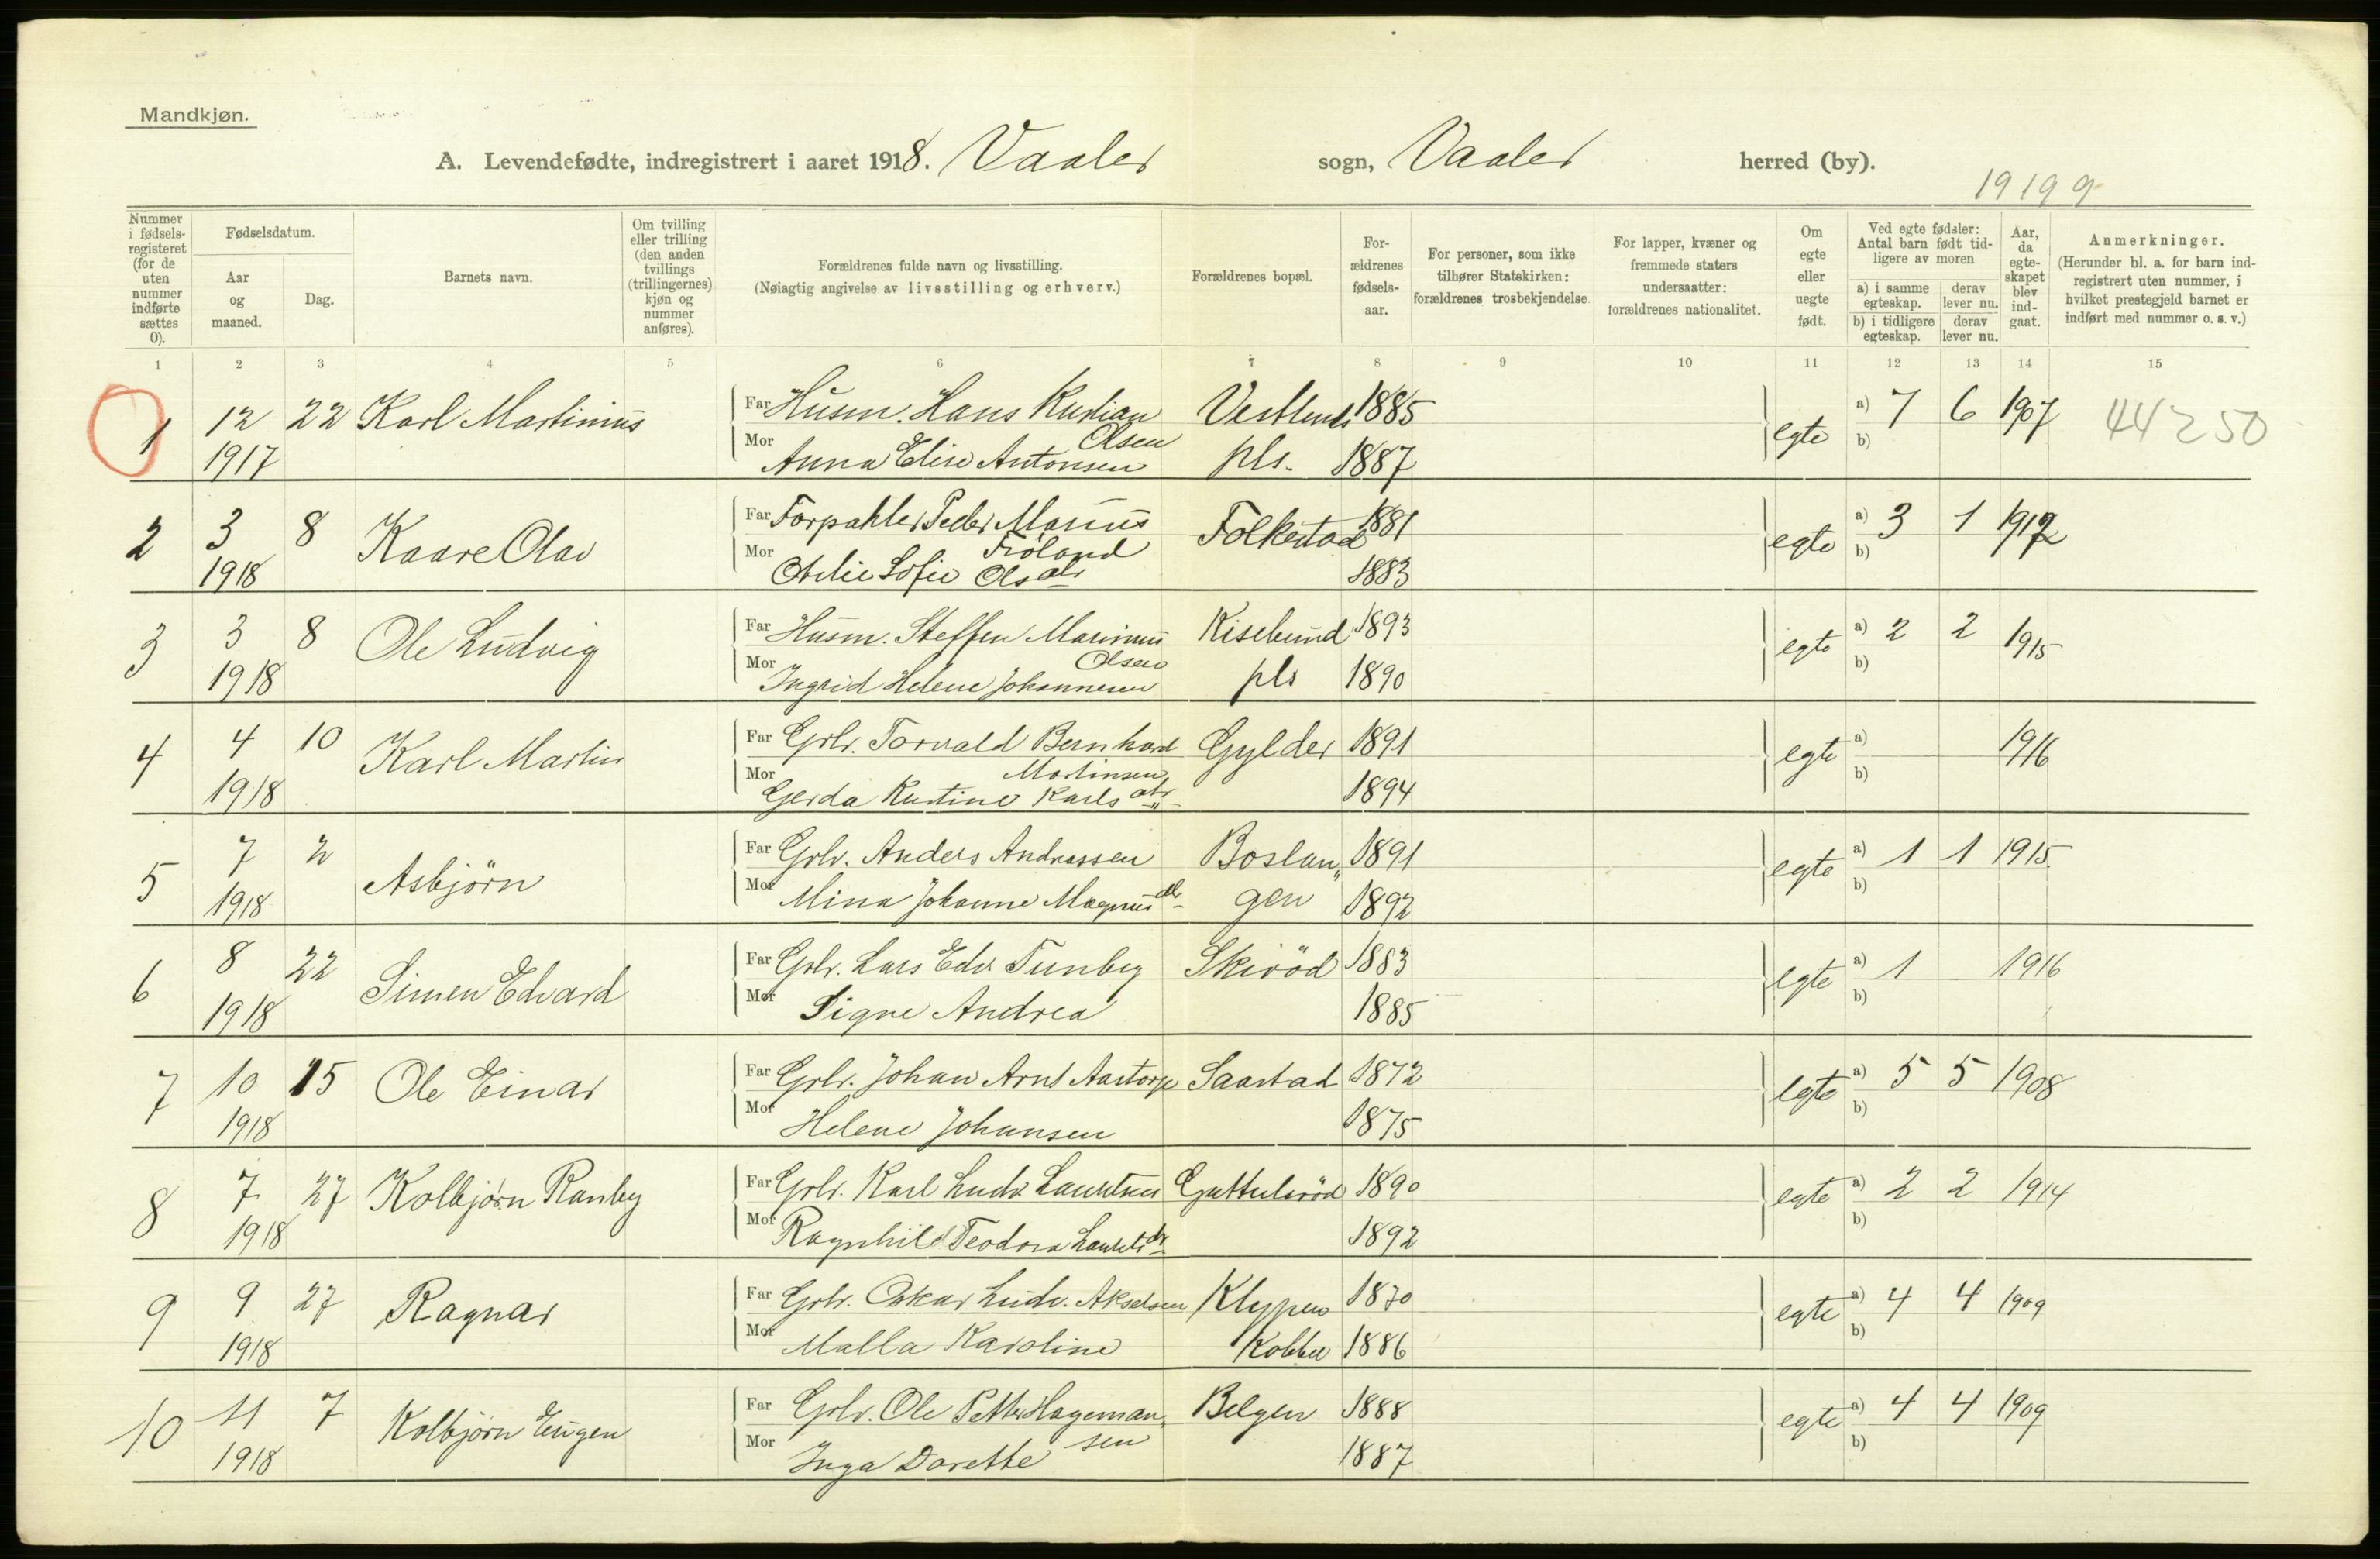 Mandkjøn.
A. Levendefødte, indregistrert i aaret 1918. Vaaler sogn, Vaaler herred (by).
19199
Nummer i fødsels-registeret (for de uten nummer indførte sættes 0).
Fødselsdatum.
Aar og maaned.
Dag.
Barnets navn.
Om tvilling eller trilling (den anden tvillings (trillingernes) kjøn og nummer anføres).
Forældrenes fulde navn og livsstilling.
(Nøiagtig angivelse av livsstilling og erhverv.)
Forældrenes bopæl.
For-ældrenes fødsels-aar.
For personer, som ikke tilhører Statskirken: forældrenes trosbekjendelse.
For lapper, kvæner og fremmede staters undersaatter: forældrenes nationalitet.
Om egte eller uegte født.
Ved egte fødsler: Antal barn født tid-ligere av moren
a) i samme egteskap. derav lever nu.
b) i tidligere egteskap. derav lever nu.
Aar, da egte-skapet blev ind-gaat.
Anmerkninger.
(Herunder bl. a. for barn ind-registrert uten nummer, i hvilket prestegjeld barnet er indført med nummer o. s. v.)
1 2 3 4 5 6 7 8 9 10 11 12 13 14 15
1 12 22 Karl Martinius Far Husm. Hans Kristian 1885 egte a) 7 6 1907 44250
Olsen
1917 Mor Anna Elise Antonsen pls. 1887 b)
2 3 8 Kaare Olav Far Forpakter Peder Marius Folkestad 1881 egte a) 3 1 1912
Fröland
1918 Mor Otelie Sofie Olsdtr 1883 b)
3 3 8 Ole Ludvig Far Husm. Steffen Marinius Kiselund 1893 egte a) 2 2 1915
Olsen
1918 Mor Ingrid Helene Johannesen pls 1890 b)
4 4 10 Karl Martin Far Grbr. Torvald Bernhard Gylder 1891 egte a) 1916
Martinsen
1918 Mor Gerda Kristine Karlsdtr 1894 b)
5 7 2 Asbjörn Far Grbr. Anders Andreassen Boslan„ 1891 egte a) 1 1 1915
1918 Mor Mina Johanne Magnusdtr gen 1892 b)
6 8 22 Simen Edvard Far Grbr. Lars Edv. Tunby Skiröd 1883 egte a) 1 1916
1918 Mor Signe Andrea 1885 b)
7 10 15 Ole Einar Far Grbr. Johan Arnt Aastorp Saastad 1872 egte a) 5 5 1908
1918 Mor Helene Johansen 1875 b)
8 7 27 Kolbjørn Ranby Far Grbr. Karl Ludv. Lauritsen Guttulsröd 1890 egte a) 2 2 1914
1918 Mor Ragnhild Teodora 1892 b)
9 9 27 Ragnar Far Grbr. Oskar Ludv. Akselsen Klypen 1870 egte a) 4 4 1909
1918 Mor Malla Karoline 1886 b)
10 11 7 Kolbjörn Eugen Far Grbr. Ole Petter Hageman„ Belgen 1888 egte a) 4 4 1909
sen
1918 Mor Inga Dorethe 1887 b)